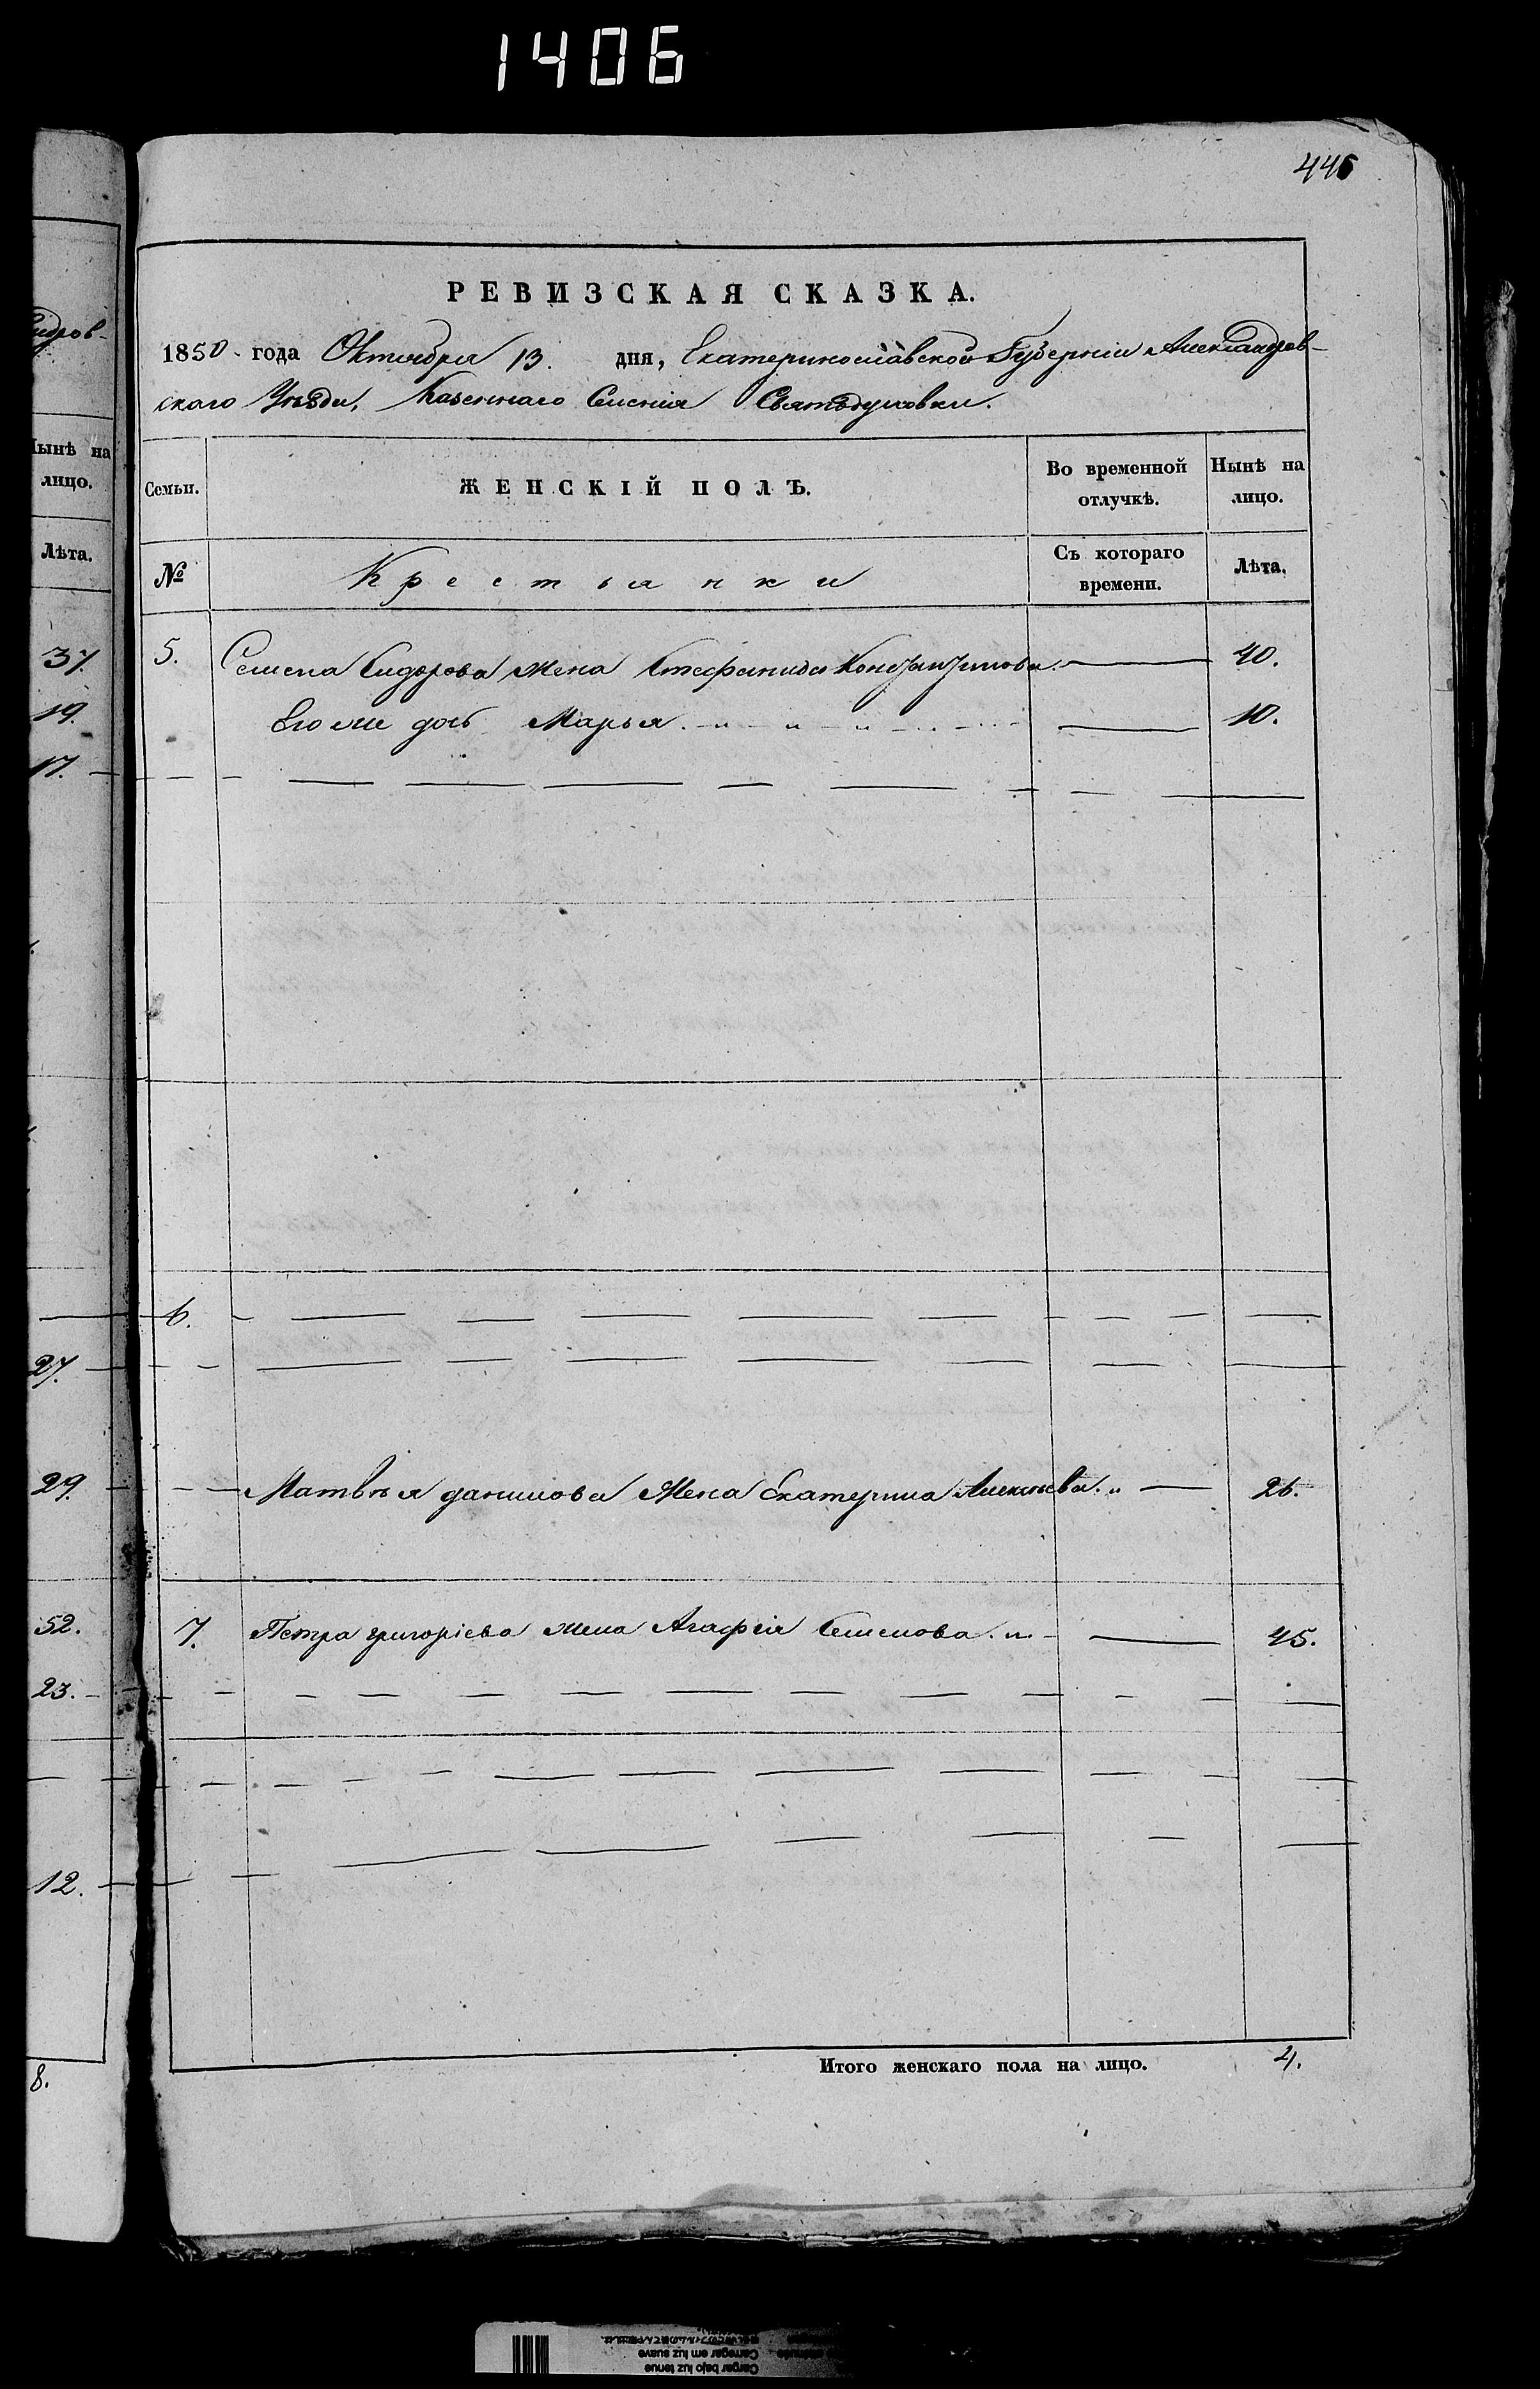 1406
446
РЕВИЗСКАЯ СКАЗКА.
1850 года Октября 13. дня, Екатеринославской Губерніи Александров-
скаго Уѣзда, Казеннаго Селенія Святодуховки.
Семьи.
ЖЕНСКІЙ ПОЛЪ.
Во временной отлучкѣ.
Нынѣ на лицо.
№
Крестьянки
Съ котораго времени.
Лѣта.
5. Семена Сидорова жена Стефанида Константинова. 40.
Его же дочь Марья. 10.
6.
Матвѣя Данилова жена Екатерина Алексѣева. 26.
7. Петра Григорієва жена Агафія Семенова. 45.
Итого женскаго пола на лицо. 4.
ндров-
Нынѣ на
лицо.
Лѣта.
37.
19.
17.
27.
29.
52.
23.
12.
8.
Carregar em luz suave
Cargar bajo luz tenue